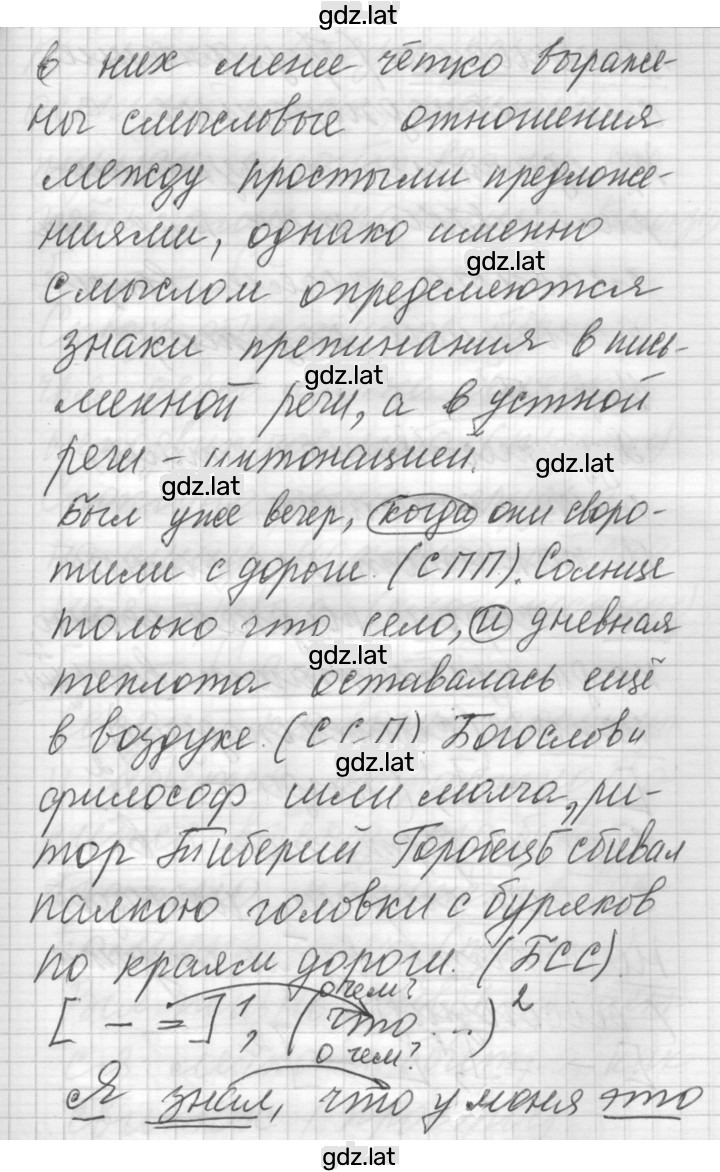 gdz.lat
в них менее чётко выраже-
ны смысловые отношения
между простыми предложе-
ниями, однако именно
gdz.lat
смыслом определяются
знаки препинания в пись-
gdz.lat
менной речи, а в устной
речи – интонацией.
gdz.lat
gdz.lat
Был уже вечер, когда они сворo-
тили с дороги. (СПП). Солнце
только что село, и дневная
gdz.lat
теплота оставалась ещё
в воздухе. (ССП). Богослов и
gdz.lat
философ шли молча, ри-
тор Тиберий Горобець сбивал
палкою головки с буряков
по краям дороги. (БСС)
о чем?
[ – = ]¹, (что ...)²
о чем?
Я знал, что у меня это
gdz.lat